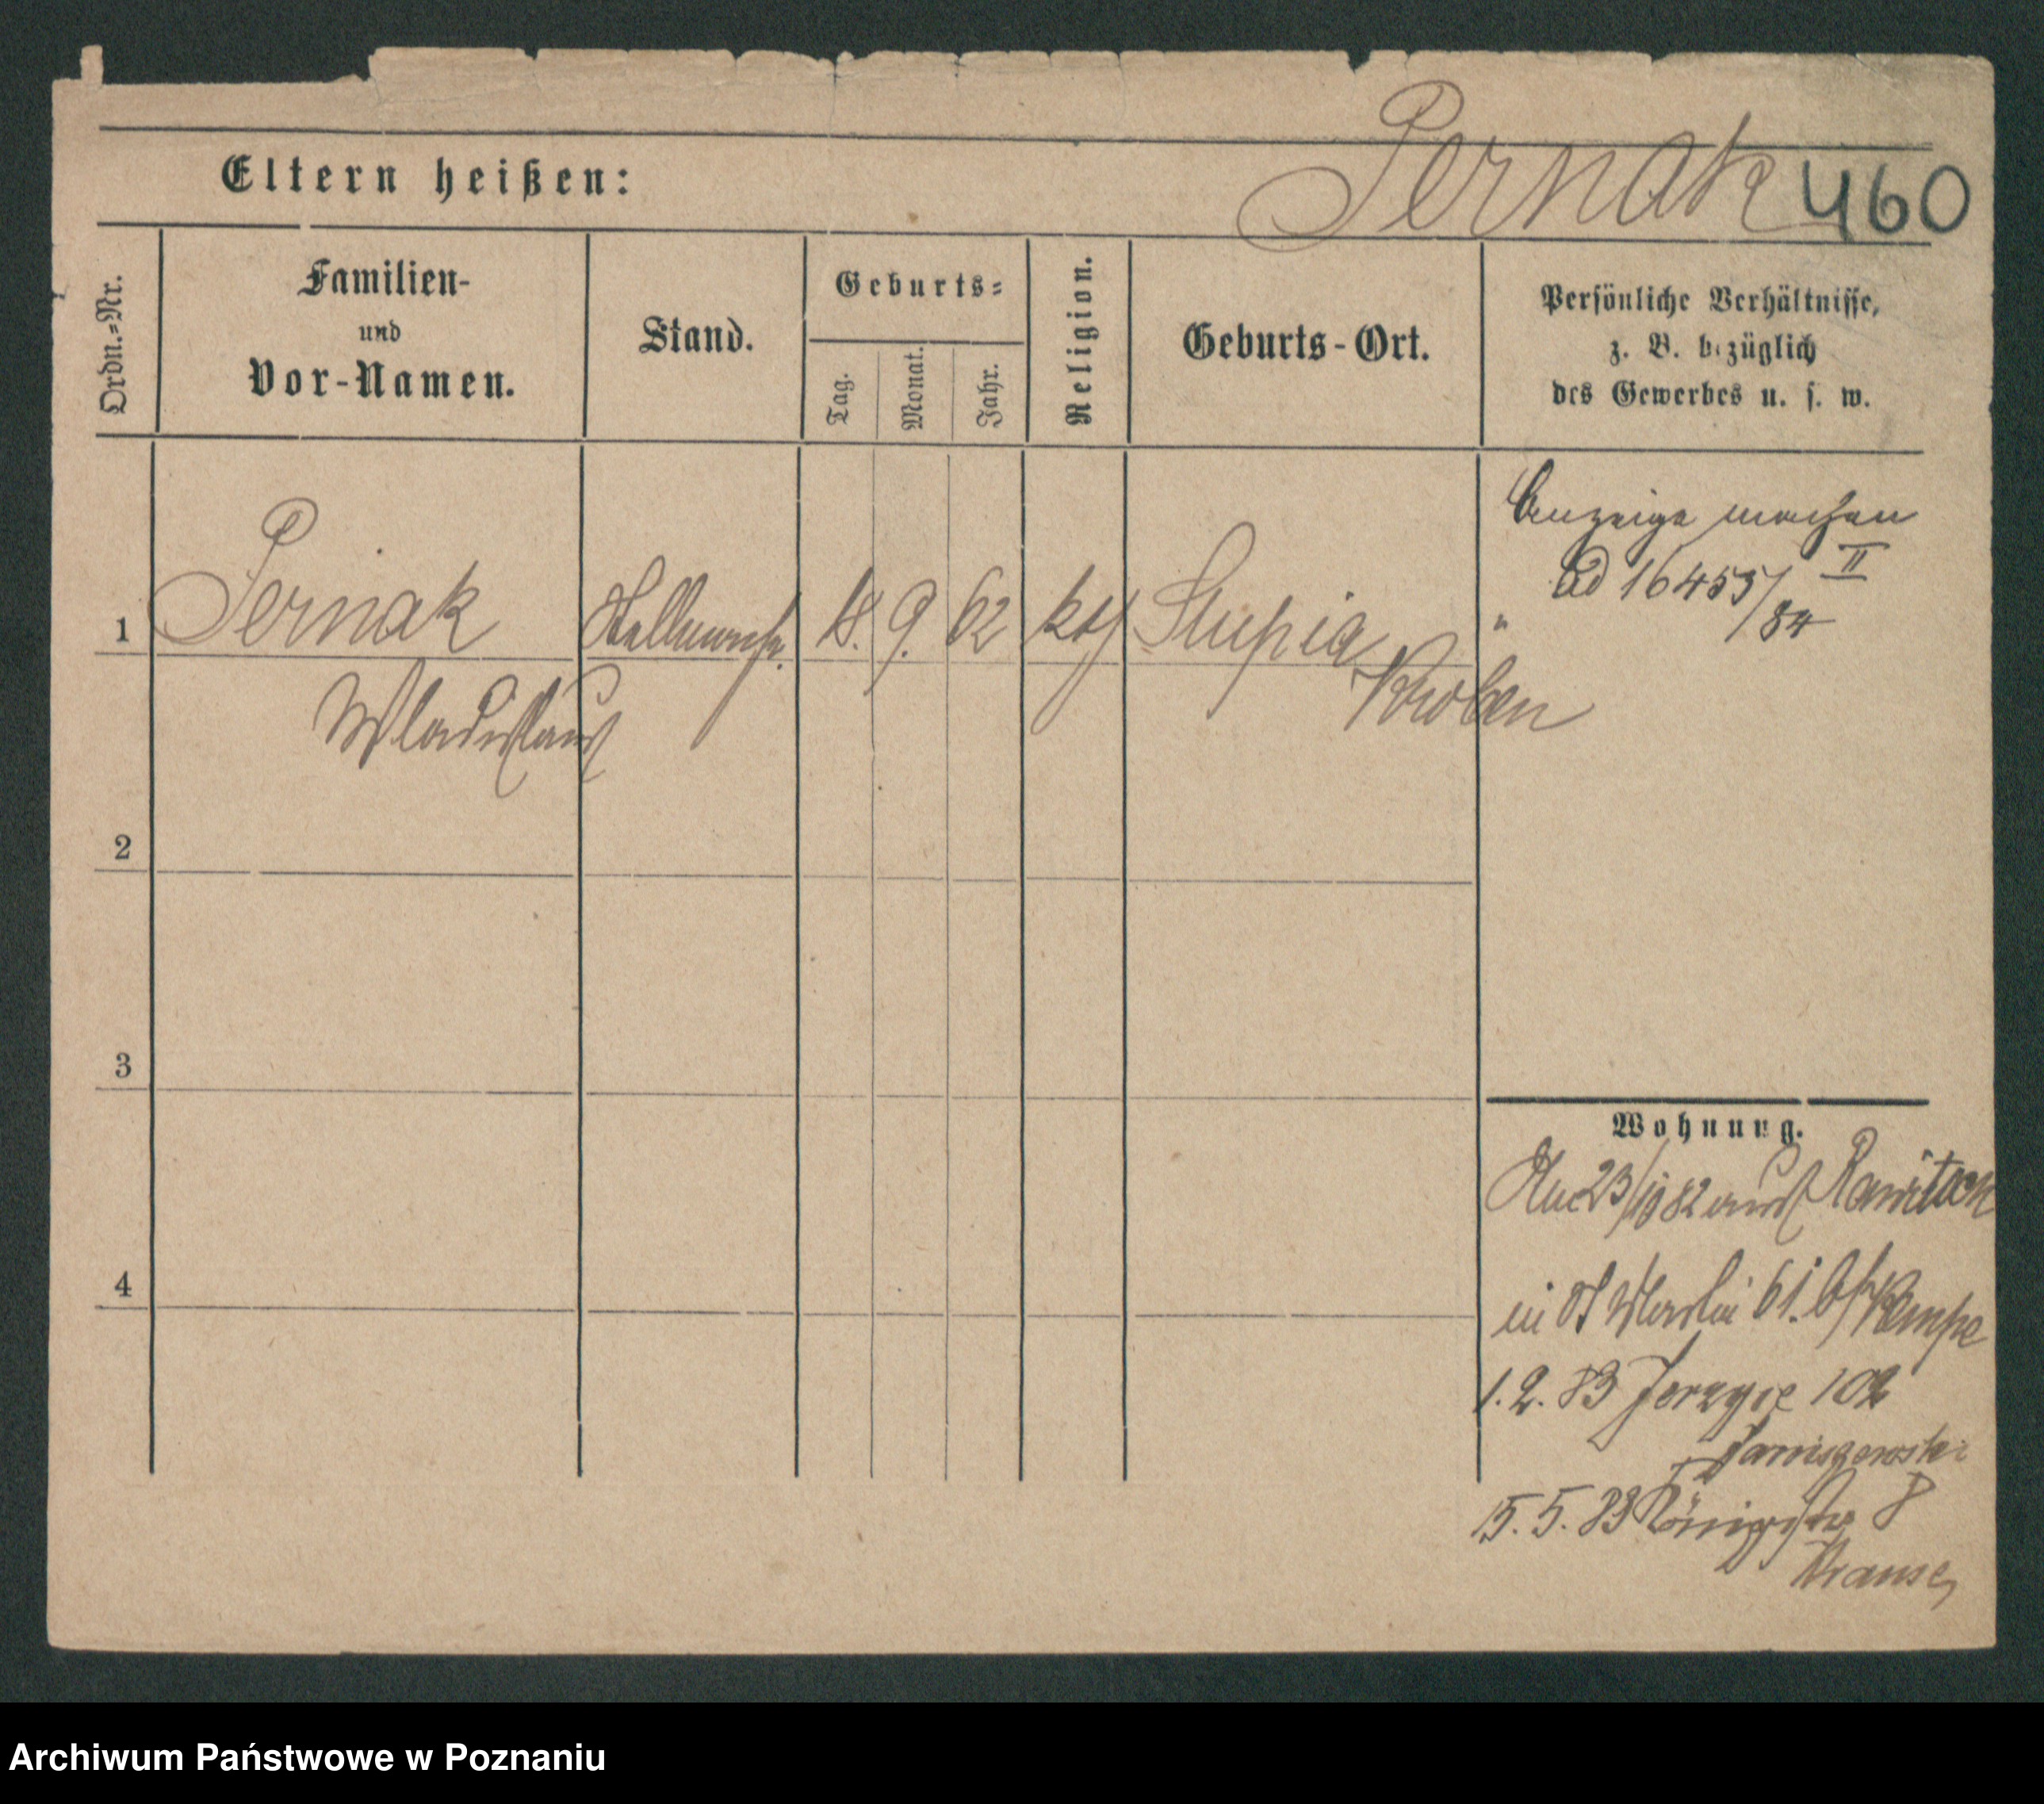 Pernak 460
Eltern heißen:
Ordn.=Nr.
Familien-
und
Vor-Namen.
Stand.
Geburts=
Tag.
Monat.
Jahr.
Religion.
Geburts-Ort.
Persönliche Verhältnisse,
z. B. bezüglich
des Gewerbes u. s. w.
Anzeige machen
ad 16455/84 II
1 Pernak 18. 9. 62 kth Slupia
Wladislaus Kroben
2
3
4
Wohnung.
23/10 82 aus Rawitsch
in St Martin 61. b/ Kempe
1. 2. 83 Jerzyce 102
15. 5. 83 Königsstr 8
Krause
Archiwum Państwowe w Poznaniu